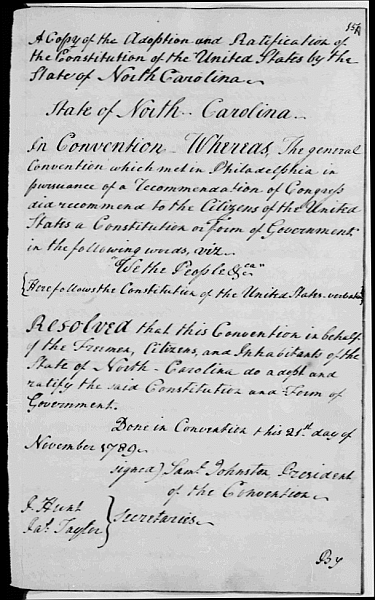 A Copy of the Adoption and Ratification of
the Constitution of the United States by the
State of North Carolina
State of North Carolina
In Convention Whereas, The general
Convention which met in Philadelphia in
pursuance of a recommendation of Congress
did recommend to the Citizens of the United
States a Constitution or form of Government
in the following words, viz.
"We the People &ca"
(Here follows the Constitution of the United States verbatim)
Resolved that this Convention in behalf
of the Freemen, Citizens, and Inhabitants of the
State of North-Carolina do adopt and
ratify the said Constitution and Form of
Government.
Done in Convention this 21st day of
November 1789
signed) Saml Johnston President
of the Convention
J Hunt
Jas. Taylor } Secretaries
By